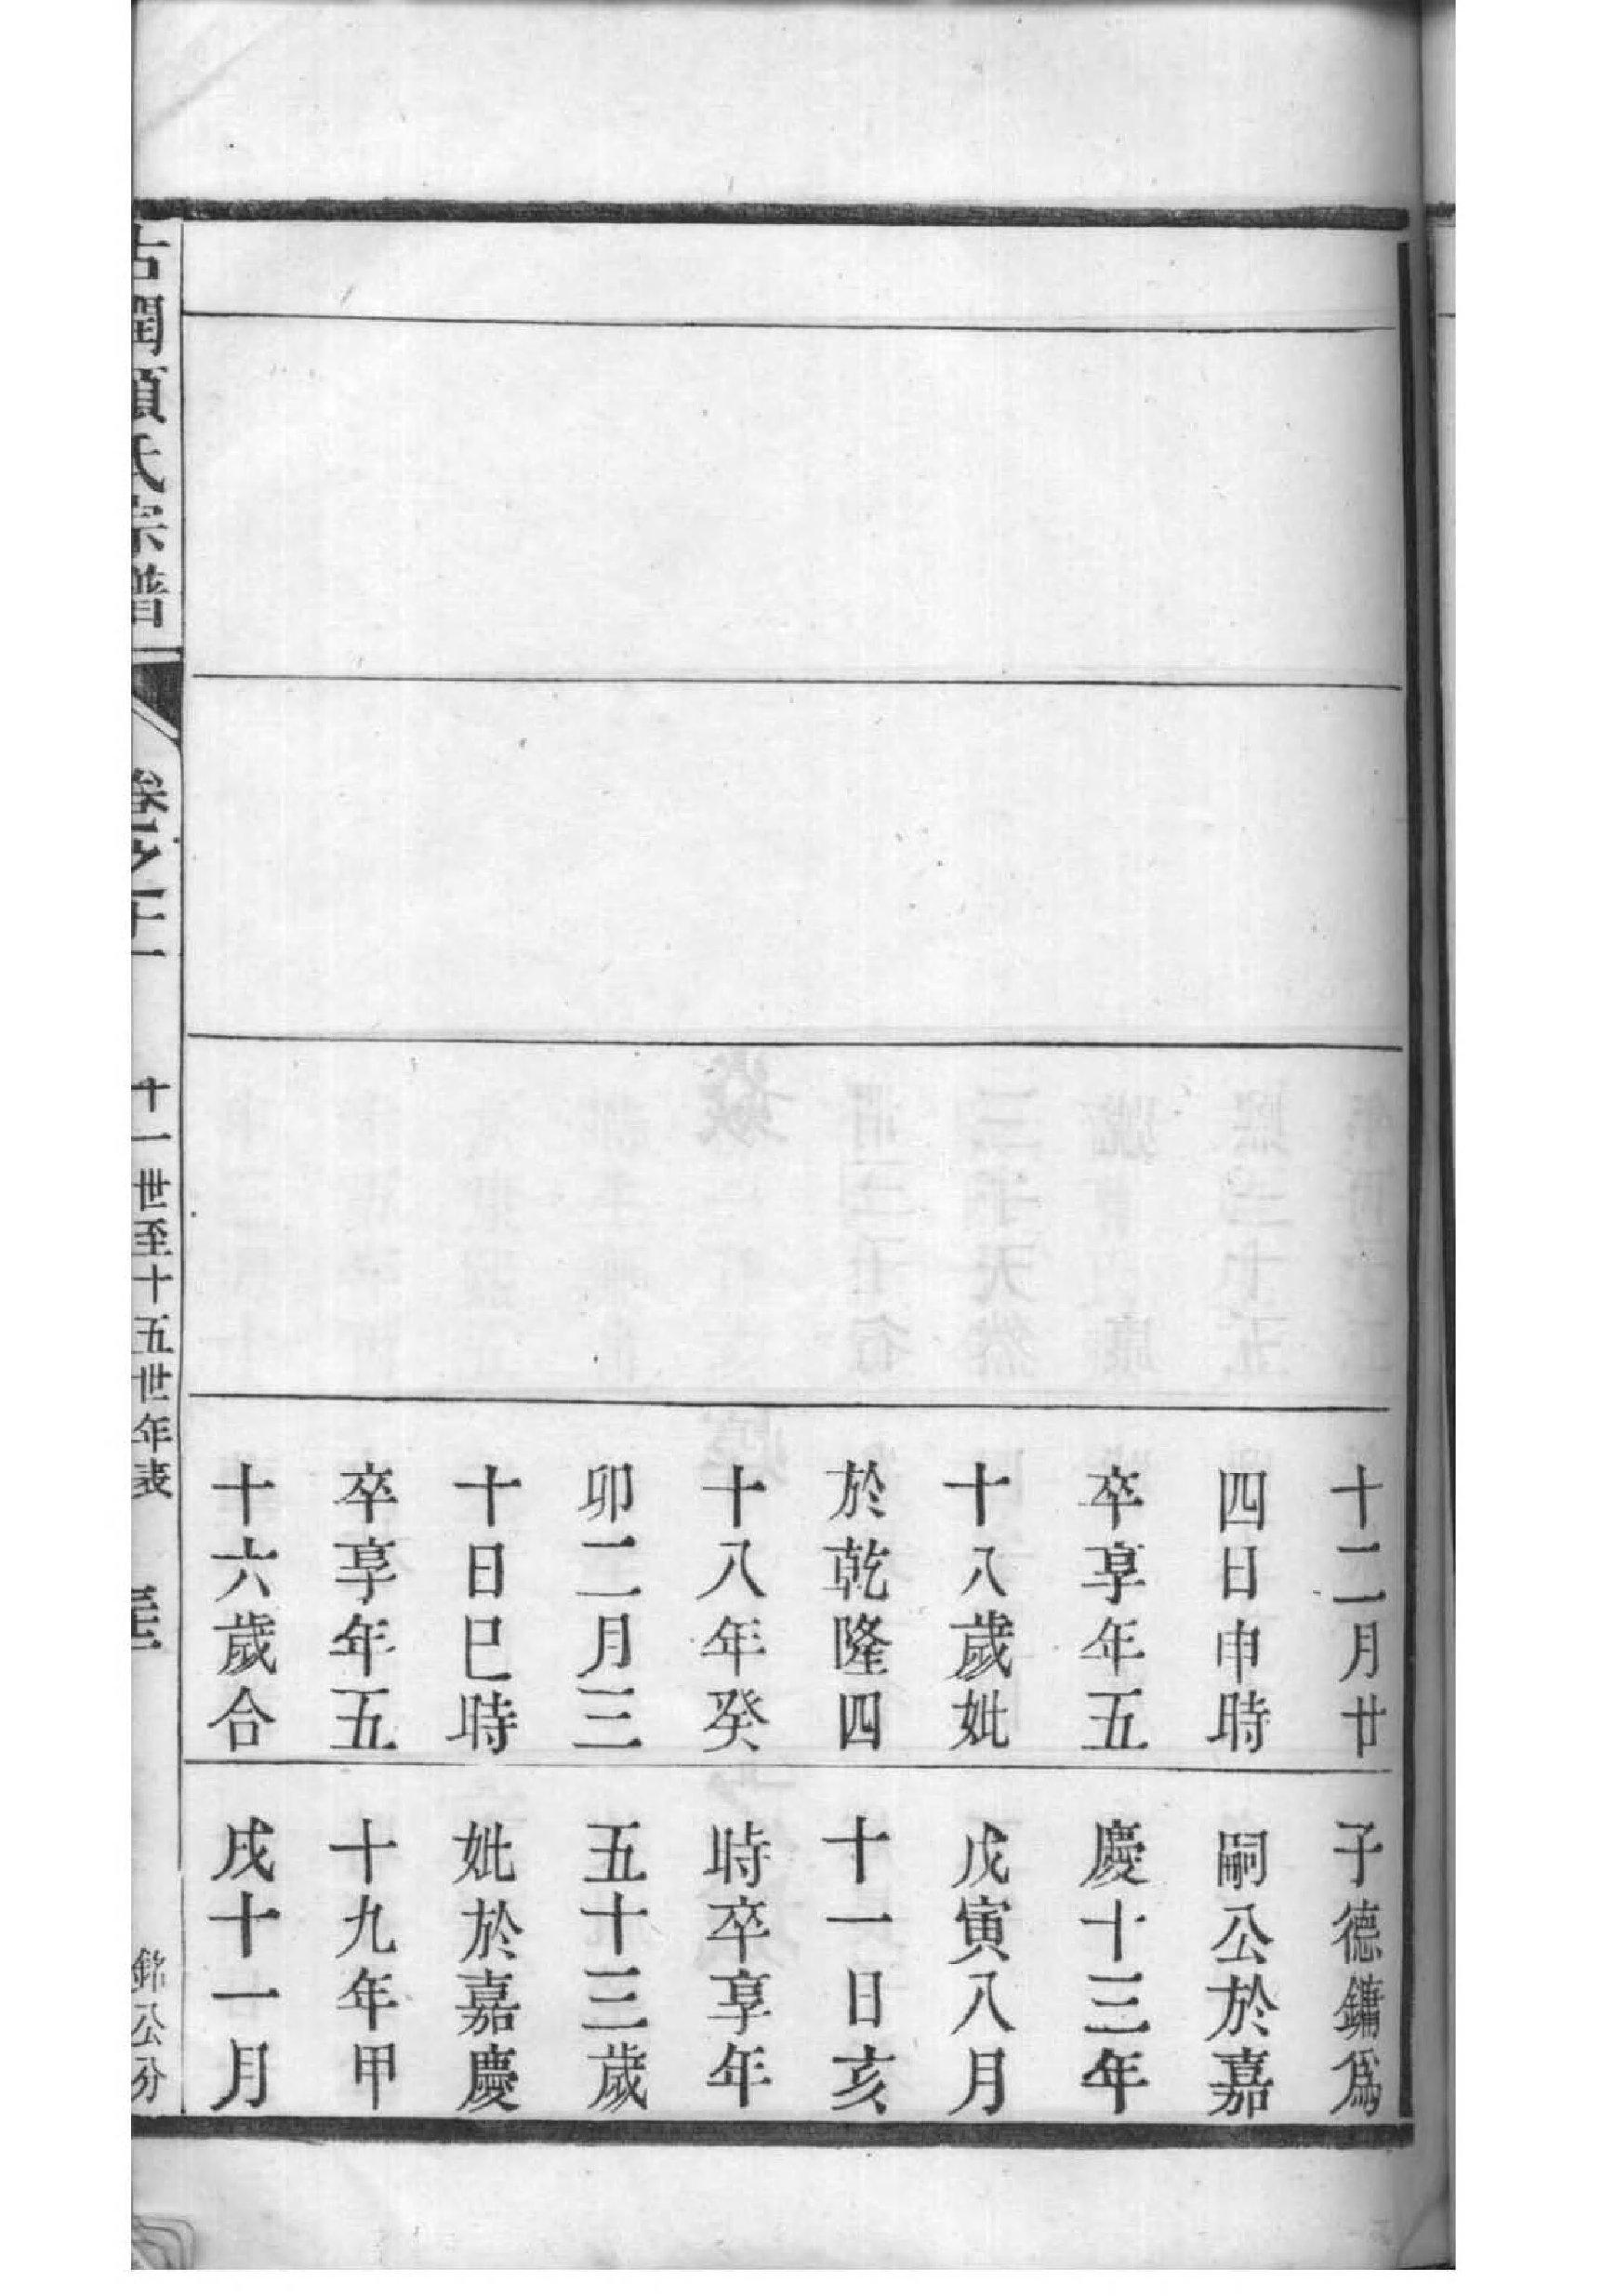 十二月廿
四日申時
卒享年五
十八歲妣
於乾隆四
十八年癸
卯二月三
十日巳時
卒享年五
十六歲合
子德鏞爲
嗣公於嘉
慶十三年
戊寅八月
十一日亥
時卒享年
五十三歲
妣於嘉慶
十九年甲
戌十一月
古潤顧氏宗譜
卷之十一
十一世至十五世年表
銘公分